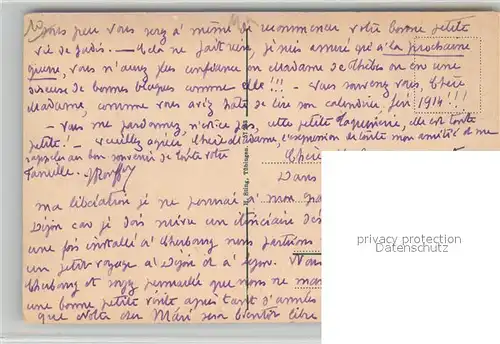 peu vous serez à même de recommencer votre bonne petite
vie de jadis. — Cela ne fait rien, je suis assuré qu'à la prochaine
guerre, vous n'aurez plus confiance en Madame de Thèbes ou en une
diseuse de bonnes blagues comme elle!!! — Vous souvenez vous, Chère
Madame, comme vous aviez hâte de lire son calendrier 1914!!!
— Vous me pardonnez, n'est-ce pas, cette petite taquinerie, elle est toute
petite! — Veuillez agréer Chère Madame, l'expression de toute mon amitié et me
rappeler au bon souvenir de toute votre
famille.
Chère
Dans
ma libération je ne pensais à mon pa
Dijon car je dois suivre un itinéraire des
une fois installé à Cherbourg nous partirons
un petit voyage à Dijon et à Lyon. Nous
Cherbourg et soyez persuadée que nous ne ma
une bonne petite visite après tant d'années
que votre cher Mari sera bientôt libre
H. Sting, Tübingen
privacy protection
Datenschutz